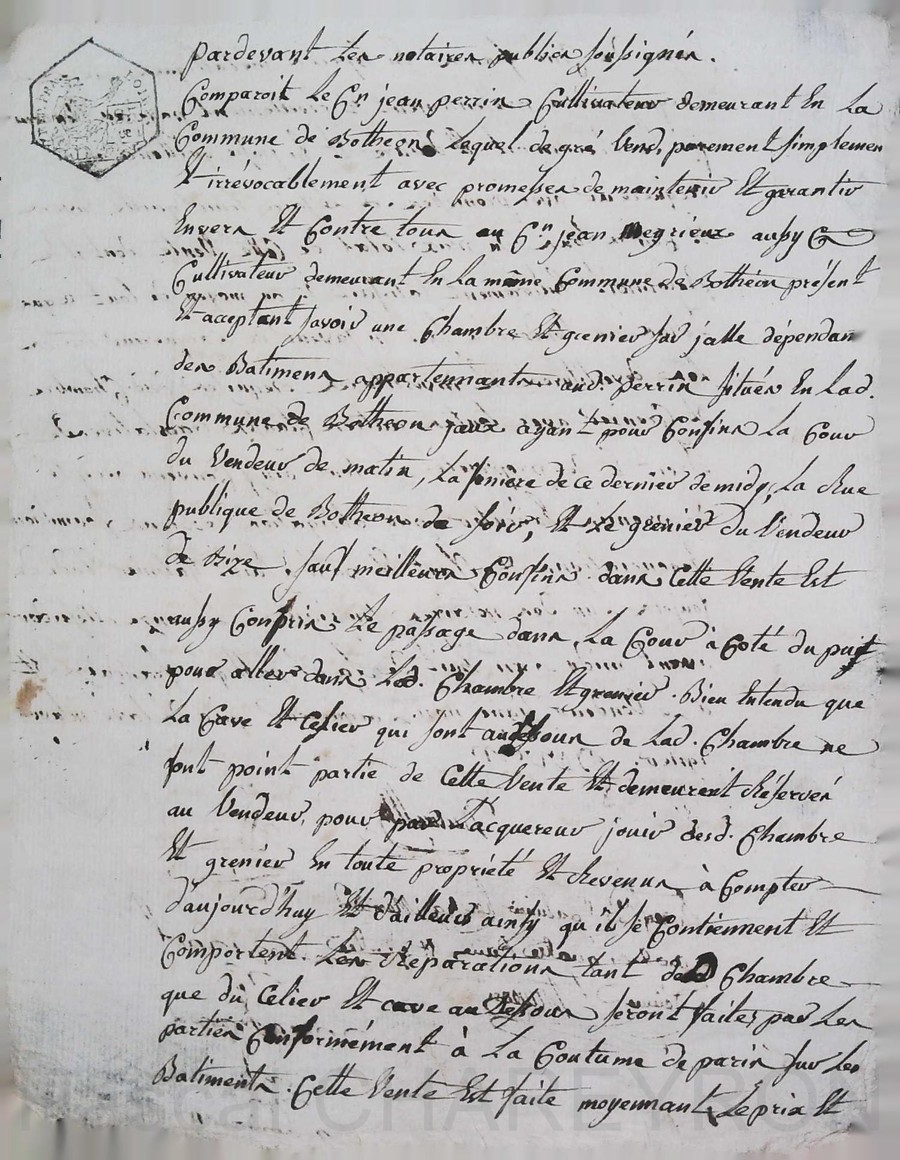 pardevant Les notaires publics soussignés.
Comparoit Le Cn jean perrin Cultivateur demeurant En La
Commune de Botheon Lequel de gré Vend, purement simplemen
Et irrévocablement avec promesses de maintenir Et garantir
Envers Et Contre tous au Cn jean Megrieux aussy
Cultivateur demeurant En La même Commune de Bothéon présent
Et acceptant savoir une Chambre Et grenier sur jcelle dépendan
des Batimens appartennants aud. perrin situés En Lad.
Commune de Botheon jceux ayant pour Confins La Cour
du Vendeur de matin, La feniere de ce dernier de midy, La Rue
publique de Botheon de soir, Et Le grenier du Vendeur
de Bize, sauf meilleurs Confins. dans Cette Vente Est
aussy Compris Le passage dans La Cour à Coté du puit
pour aller dans Lad. Chambre Et grenier. Bien Entendu que
La Cave Et Celier qui sont audessous de Lad. Chambre ne
font point partie de Cette Vente Et demeurent Réservés
au Vendeur, pour par L'acquereur jouir desd. Chambre
Et grenier En toute propriété Et Revenus à Compter
d'aujourd'huy Et d'ailleurs ainsy qu'ils se Contiennent Et
Comportent. Les Reparations tant Chambre
que du Celier Et cave au dessous seront faites par Les
parties Conformément à La Coutume de paris sur Les
Batiments. Cette Vente Est faite moyennant Le prix Et
CHAREYRON